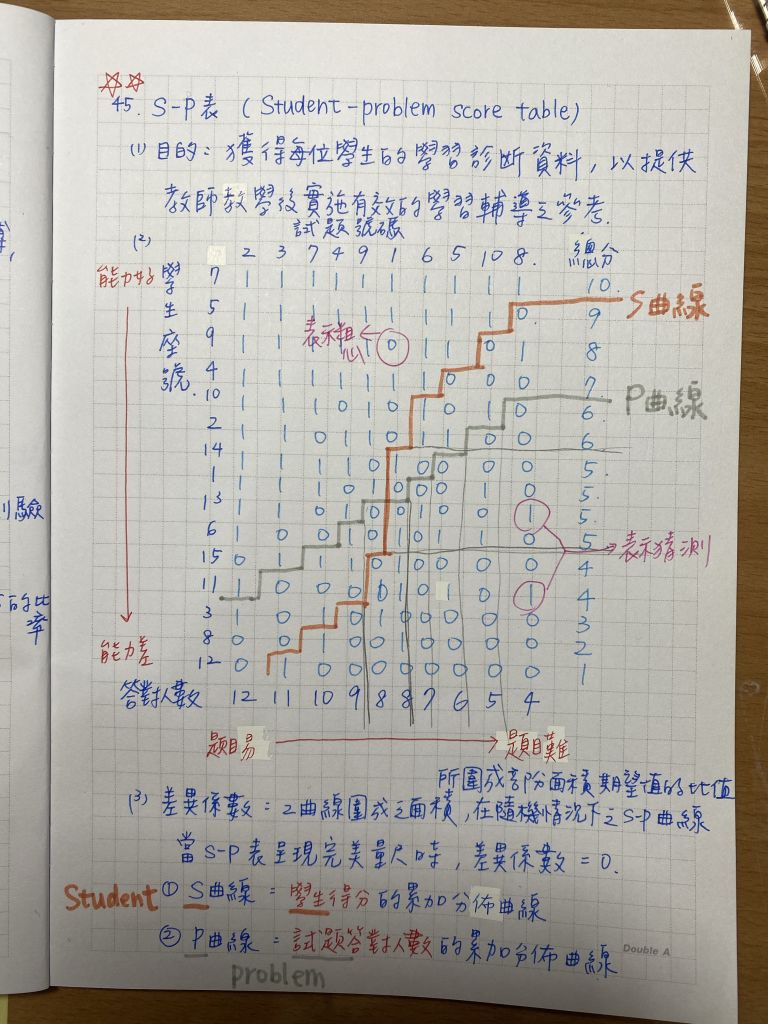 45. S-P表 ( Student-problem score table)
(1) 目的：獲得每位學生的學習診斷資料，以提供
教師教學後實施有效的學習輔導之參考.
試題號碼
(2) 2 3 7 4 9 1 6 5 10 8. 總分
能力好
學生座號.
7 1 1 1 1 1 1 1 1 1 1 10.
5 1 1 1 1 1 1 1 1 1 0. 9
S曲線
9 1 1 1 1 1 0 1 1 0 1 8
表示粗心
4 1 1 1 1 1 1 1 0 0 0 7
10 1 1 1 0 1 1 0 0 1 0 6
P曲線
2 1 1 0 1 1 1 0 1 0 0 6
14 1 1 1 1 0 1 0 0 0 0 5.
1 1 1 1 0 1 0 0 0 1 0 5.
13 1 1 0 1 0 1 0 0 0 1 5.
6 1 0 0 1 1 0 1 0 5
表示猜測
15 0 1 1 0 0 0 0 4
11 1 0 0 0 0 1 0 1 4
3 0 0 0 0 0 3
8 0 0 1 0 0 1 0 0 0 0 2
12 0 1 0 0 0 0 0 0 0 0 1
能力差
答對人數 12 11 10 9 8 8 7 6 5 4
題目易 → 題目難
所圍成部份面積期望值的比值
(3) 差異係數：2曲線圍成之面積，在隨機情況下之S-P曲線
當S-P表呈現完美量尺時，差異係數=0.
Student ① S曲線 = 學生得分的累加分佈曲線
② P曲線 = 試題答對人數的累加分佈曲線
problem
Double A
驗
的比
率